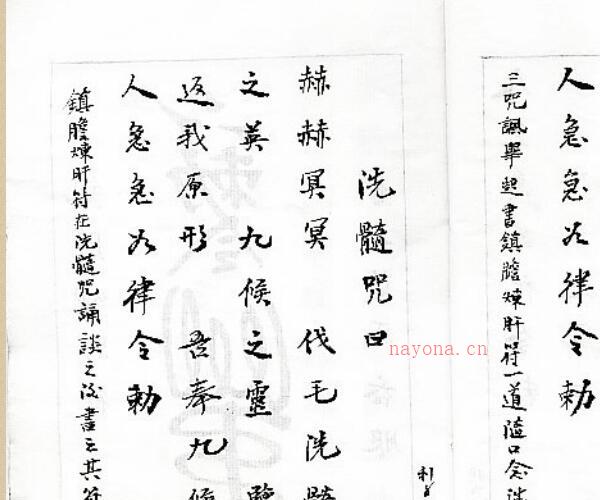 人急急如律令勅
三咒諷畢起書鎮膽煉肝符一道隨口念
洗髓咒曰
赫赫冥冥 伐毛洗髓
之英 九候之靈
返我原形 吾奉九候
人急急如律令勅
鎮膽煉肝符在洗髓咒誦談之後書之其符
nayona.cn